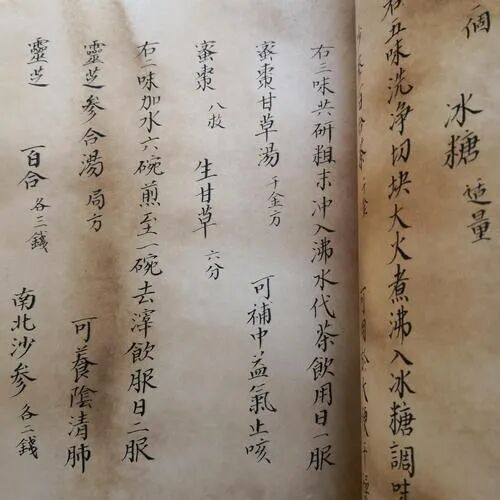 個
冰糖 适量
右五味洗净切块大火煮沸入冰糖調味
右三味共研粗末冲入沸水代茶飲用日一服
蜜棗甘草湯 千金方 可補中益氣止咳
蜜棗 八枚 生甘草 六分
右二味加水六碗煎至一碗去滓飲服日二服
靈芝参合湯 局方 可養陰清肺
靈芝 百合 各三錢 南北沙参 各二錢